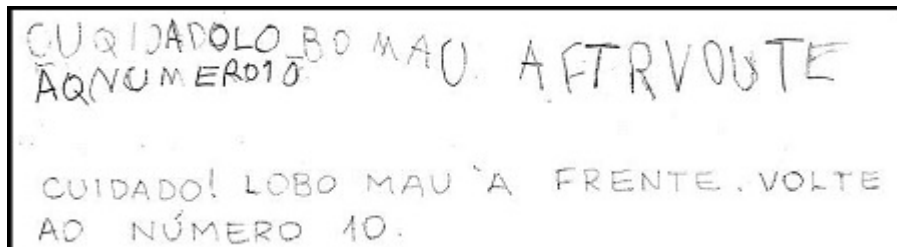 CUQIDADOLO BO MAU AFTRVOUTE
ÃQNUMERO10
CUIDADO! LOBO MAU À FRENTE. VOLTE
AO NÚMERO 10.